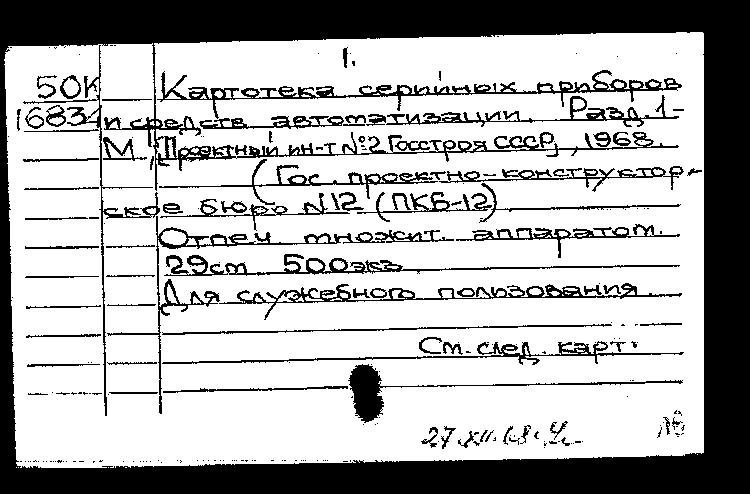 1.
50К Картотека серийных приборов
16834 и средств автоматизации. Разд. 1-
М., [Проектный ин-т №2 Госстроя СССР], 1968.
(Гос. проектно-конструктор-
ское бюро №12 (ПКБ-12)
Отпеч. множит. аппаратом.
29см 500экз.
Для служебного пользования.
См. след. карт.
27.XII.68.